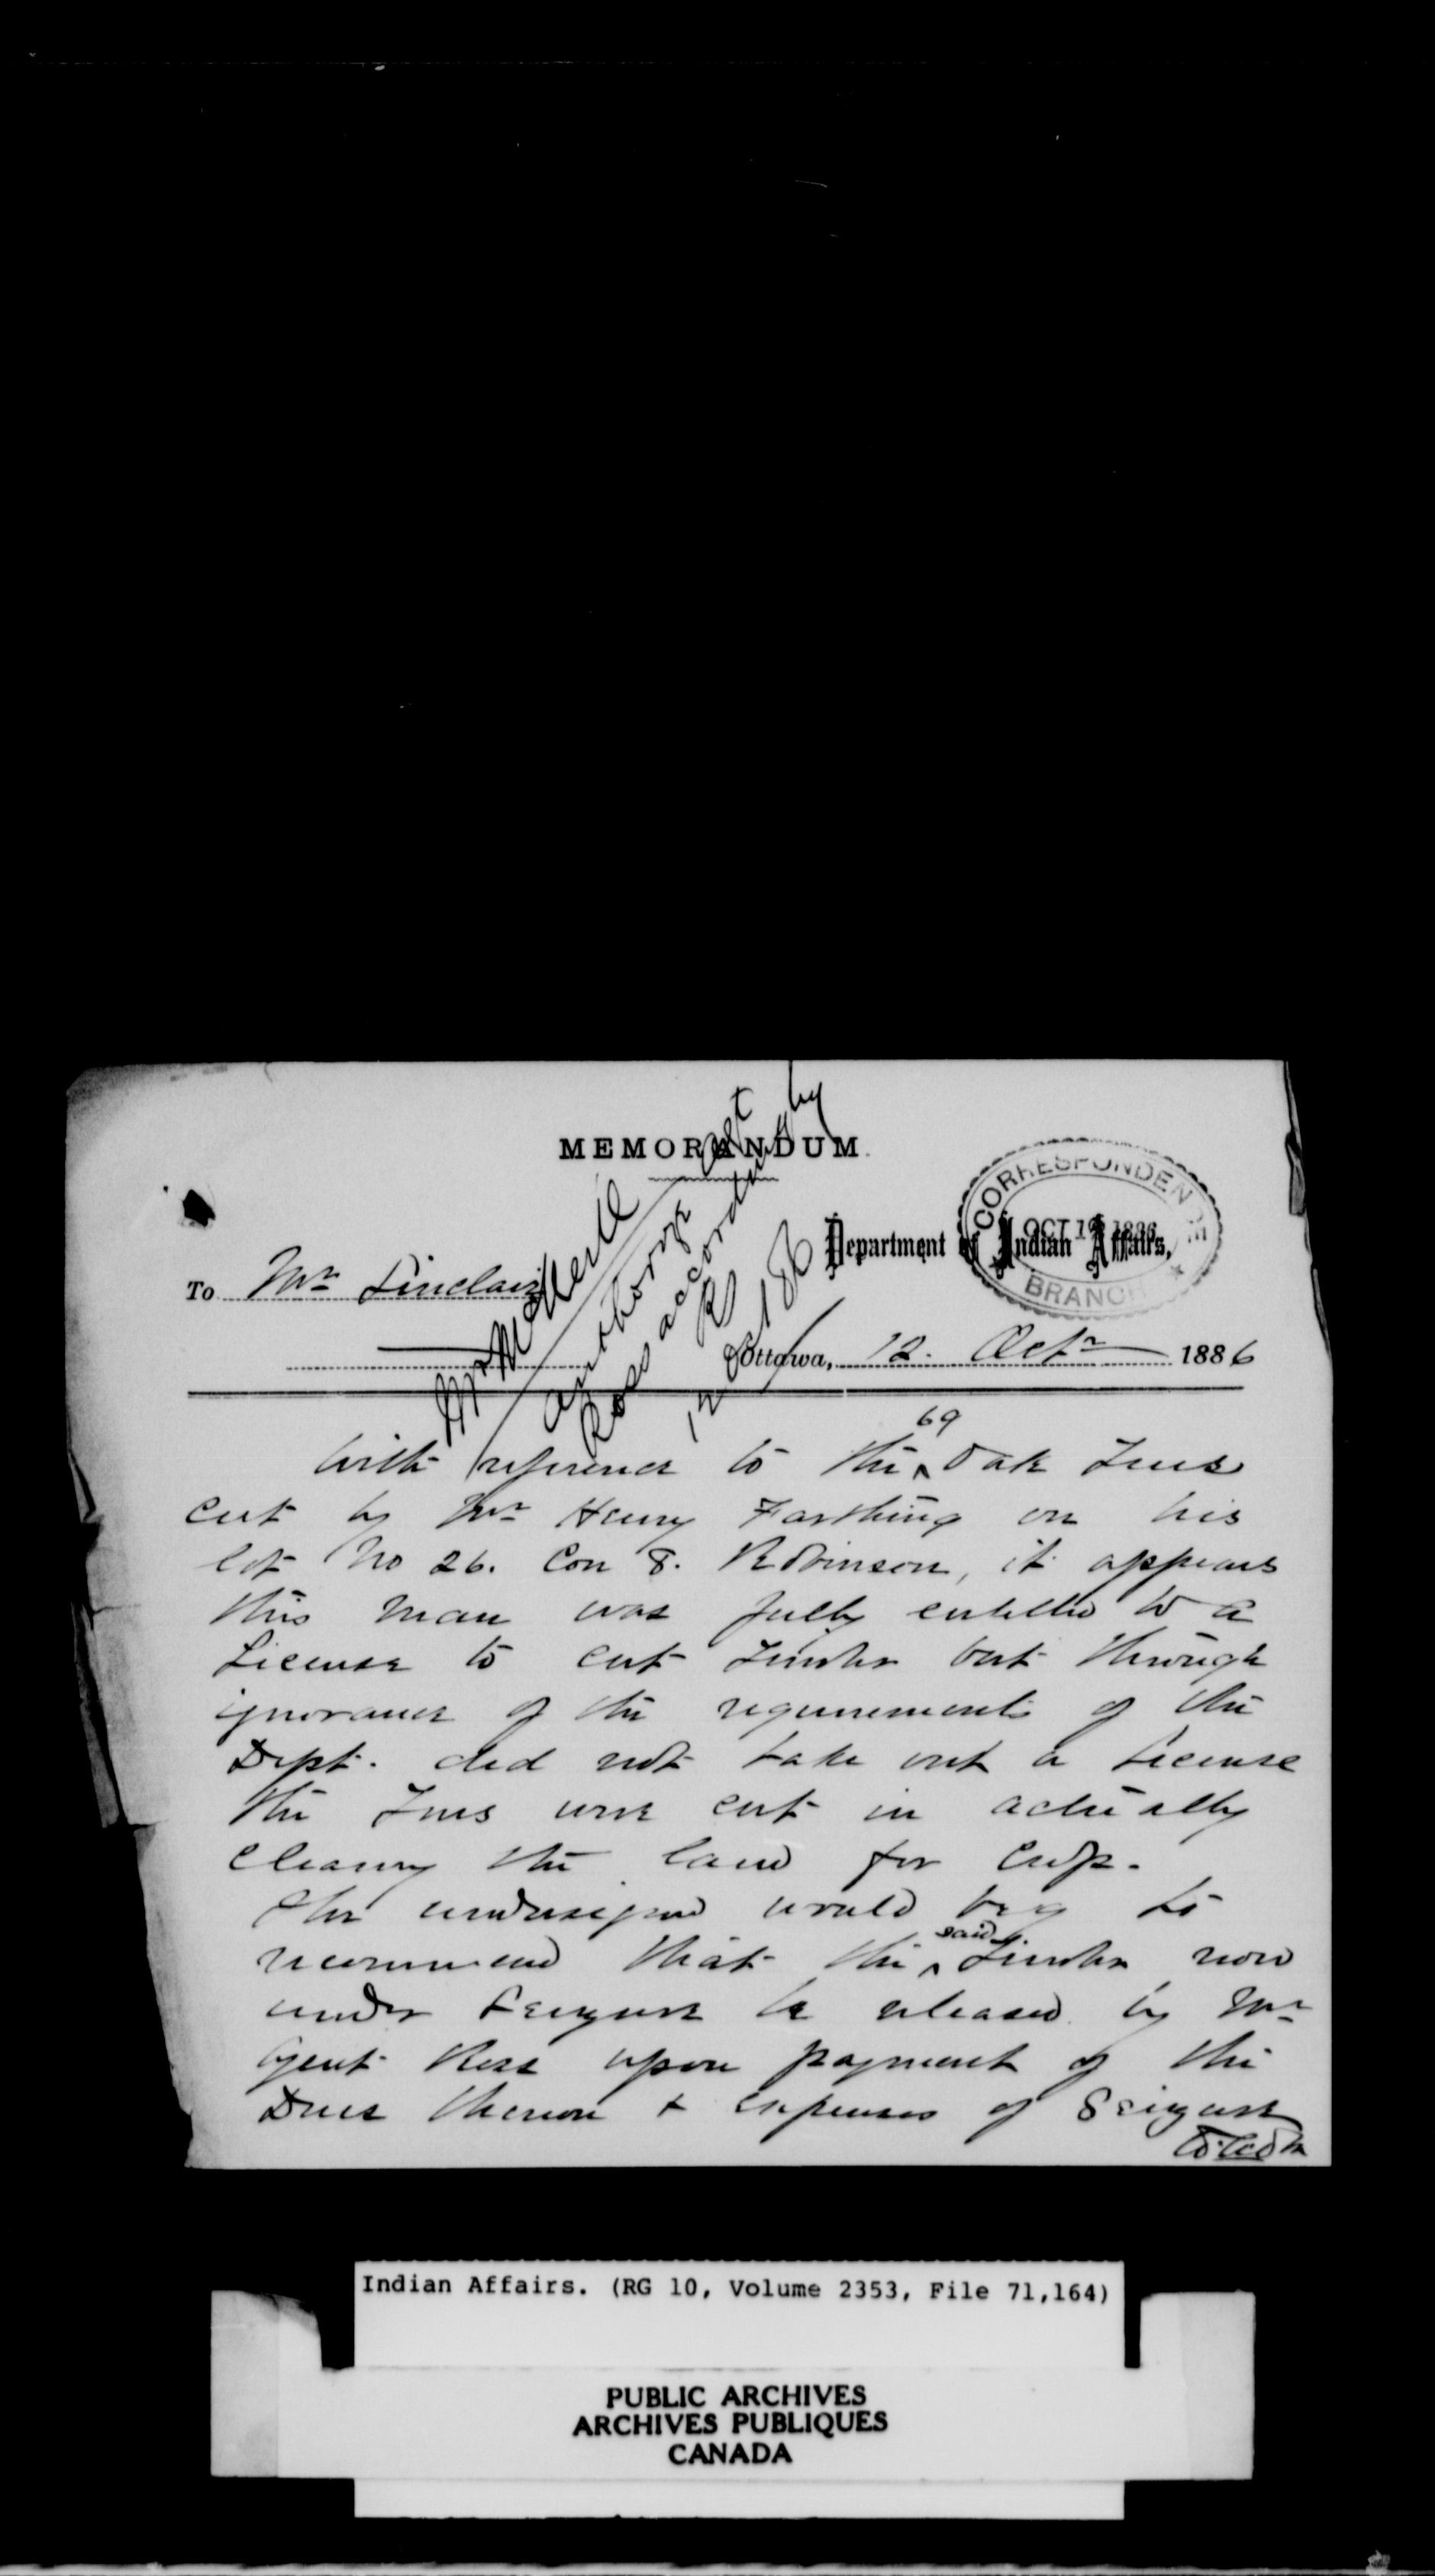 MEMORANDUM.
CORRESPONDENCE
OCT 12 1886
BRANCH
Department of Indian Affairs,
To Mr Sinclair
Ottawa, 12. Octr 1886
authorize Agt
Ross accordingly
69
With reference to the ^ Oak Trees
cut by Mr Henry Farthing on his
lot No 26. Con 8. Robinson, it appears
this man was fully entitled to a
License to cut Timber but through
ignorance of the requirements of the
Dept. did not take out a License
the Trees were cut in actually
clearing the land for crop.
The undersigned would beg to
said
recommend that the ^ Timber now
under Seizure be released by Mr
Agent Ross upon payment of the
Dues thereon & expenses of Seizure
Indian Affairs. (RG 10, Volume 2353, File 71,164)
PUBLIC ARCHIVES
ARCHIVES PUBLIQUES
CANADA